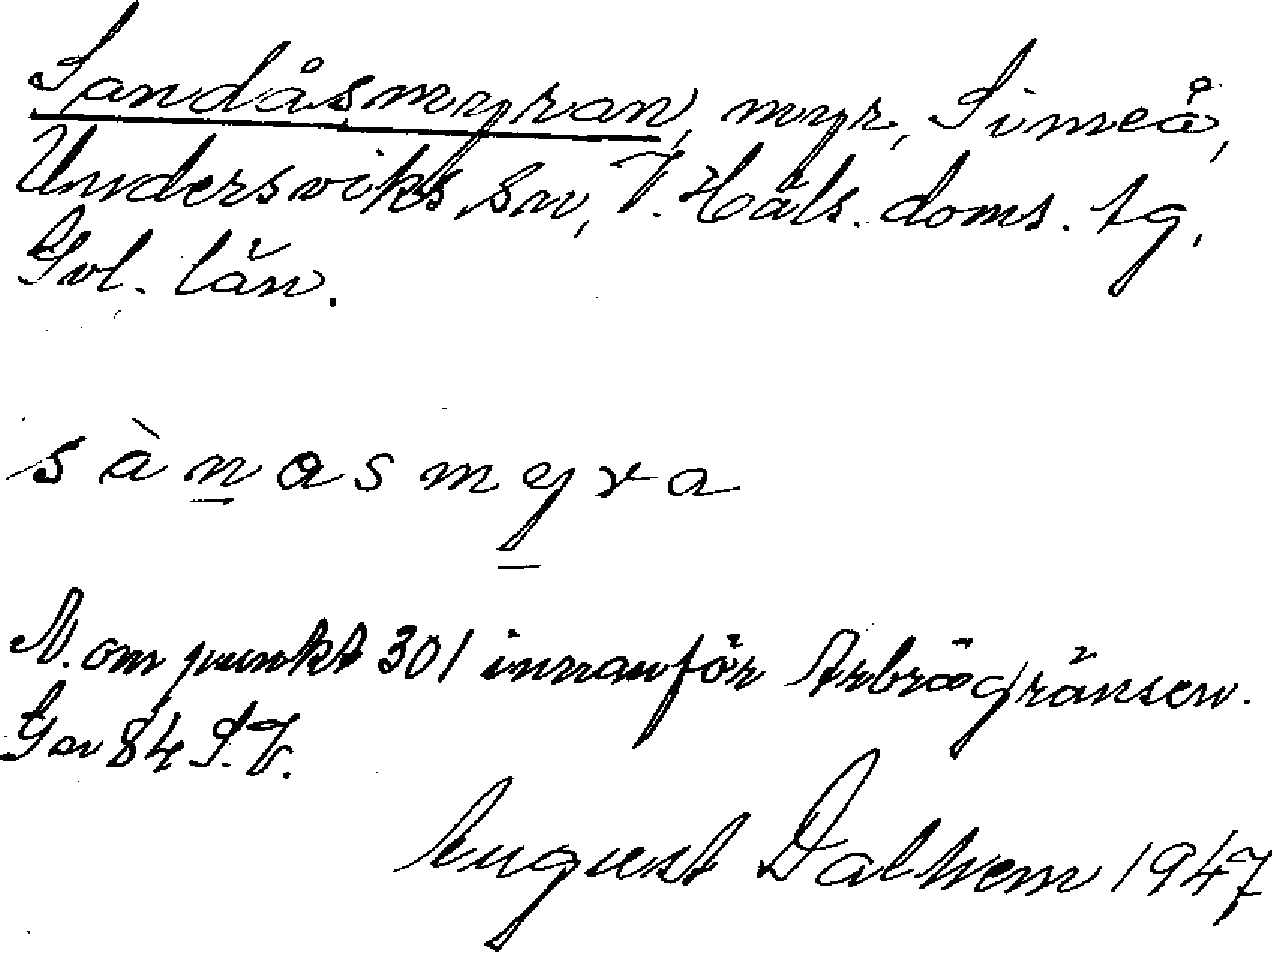 Sandåsmyran, myr, Simeå,
Undersviks sn, V. Häls. doms. tg,
Gvl. län.
sànasmyra
N. om punkt 301 innanför Arbrågränsen.
Gen 84 S.V.
August Dalhem 1947